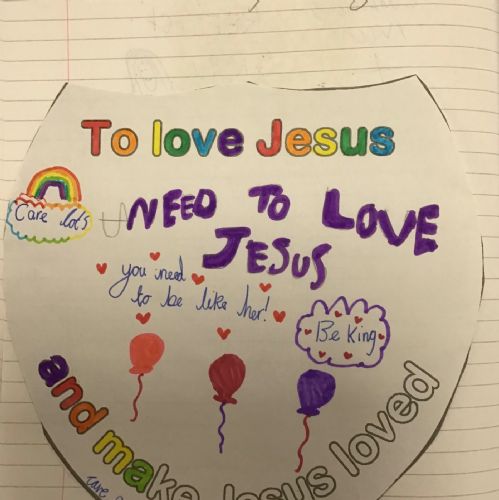 To love Jesus
Care lots
NEED TO LOVE
JESUS
you need
to be like her!
Be King
and make Jesus loved